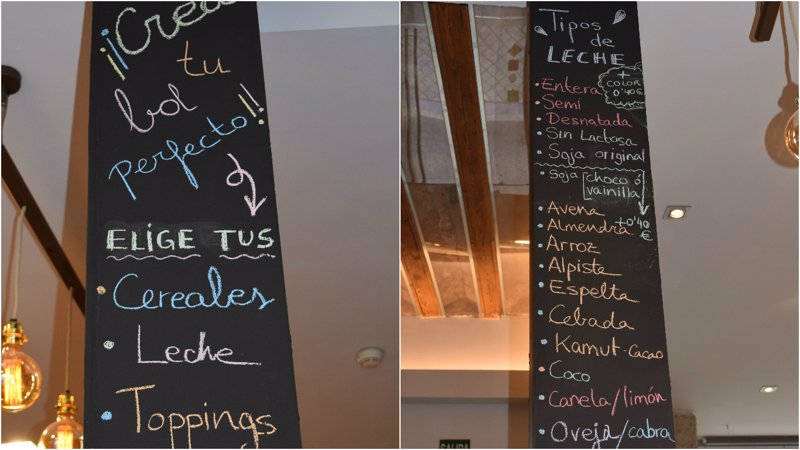 ¡¡Crea
tu
bol
perfecto!!
ELIGE TUS
• Cereales
• Leche
• Toppings
Tipos
de
LECHE
+
COLOR
0'40€
• Entera
• Semi
• Desnatada
• Sin Lactosa
• Soja original
• Soja choco ó
vainilla
+0'40
€
• Avena
• Almendra
• Arroz
• Alpiste
• Espelta
• Cebada
• Kamut-Cacao
• Coco
• Canela/limón
• Oveja/cabra
SALIDA